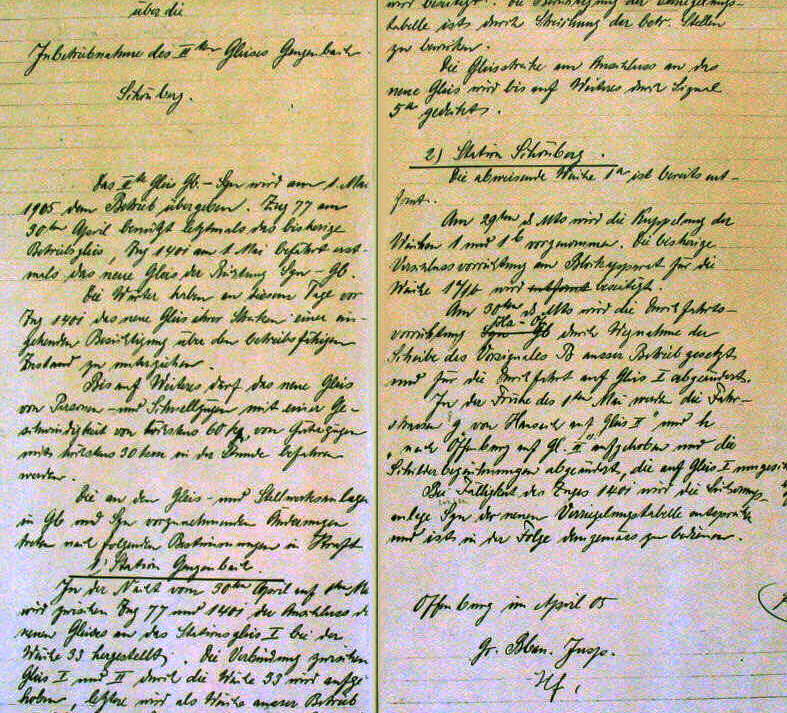 über die
Inbetriebnahme des IIten Gleises Gengenbach
Schönberg.
Das IIte Gleis Gb. - Sgn wird am 1. Mai
1905 dem Betrieb übergeben. Zug 77 am
30ten April benützt letztmals das bisherige
Betriebsgleis, Zug 1401 am 1. Mai befährt erst-
mals das neue Gleis der Richtung Sgn - Gb.
Die Wärter haben an diesem Tage vor
Zug 1401 das neue Gleis ihrer Strecken einer ein-
gehenden Besichtigung über den betriebsfähigen
Zustand zu unterziehen.
Bis auf Weiteres darf das neue Gleis
von Personen- und Schnellzügen mit einer Ge-
schwindigkeit von höchstens 60 km, von Güterzügen
mit höchstens 30 km in der Stunde befahren
werden.
Die an den Gleis- und Stellwerksanlagen
in Gb und Sgn vorzunehmenden Änderungen
treten nach folgenden Bestimmungen in Kraft
1) Station Gengenbach.
In der Nacht vom 30ten April auf 1ten Mai
wird zwischen Zug 77 und 1401 der Anschluss des
neuen Gleises an das Stationsgleis I bei der
Weiche 33 hergestellt. Die Verbindung zwischen
Gleis I und II durch die Weiche 33 wird aufge-
hoben, letztere wird als Weiche ausser Betrieb
wird beseitigt. Die
tabelle ist durch Streichung der betr. Stellen
zu bewirken.
Die Gleisstrecke am Anschluss an das
neue Gleis wird bis auf Weiteres durch Signal
5a gedeckt.
2) Station Schönberg.
Die abweisende Weiche 1a ist bereits ent-
fernt.
Am 29ten d. Mts wird die Kuppelung der
Weichen 1 und 1b vorgenommen. Die bisherige
Verschlussvorrichtung am Blockapparat für die
Weiche 1a/b wird entfernt beseitigt.
Am 30ten d. Mts wird die Durchfahrts-
vorrichtung Sgn - Gb durch Wegnahme der
Scheibe des Vorsignales B ausser Betrieb gesetzt
und für die Durchfahrt auf Gleis I abgeändert.
In der Frühe des 1ten Mai werden die Fahr-
strassen g "von Hausach auf Gleis II" und h
"nach Offenburg auf Gl. II" aufgehoben und die
Schilderbezeichnungen abgeändert, die auf Gleis I
Bei Fälligkeit des Zuges 1401 wird die Sicherungs-
anlage Sgn der neuen Verriegelungstabelle entsprechen
und ist in der Folge demgemäss zu bedienen.
Offenburg im April 05
Gr. Bbau. Insp.